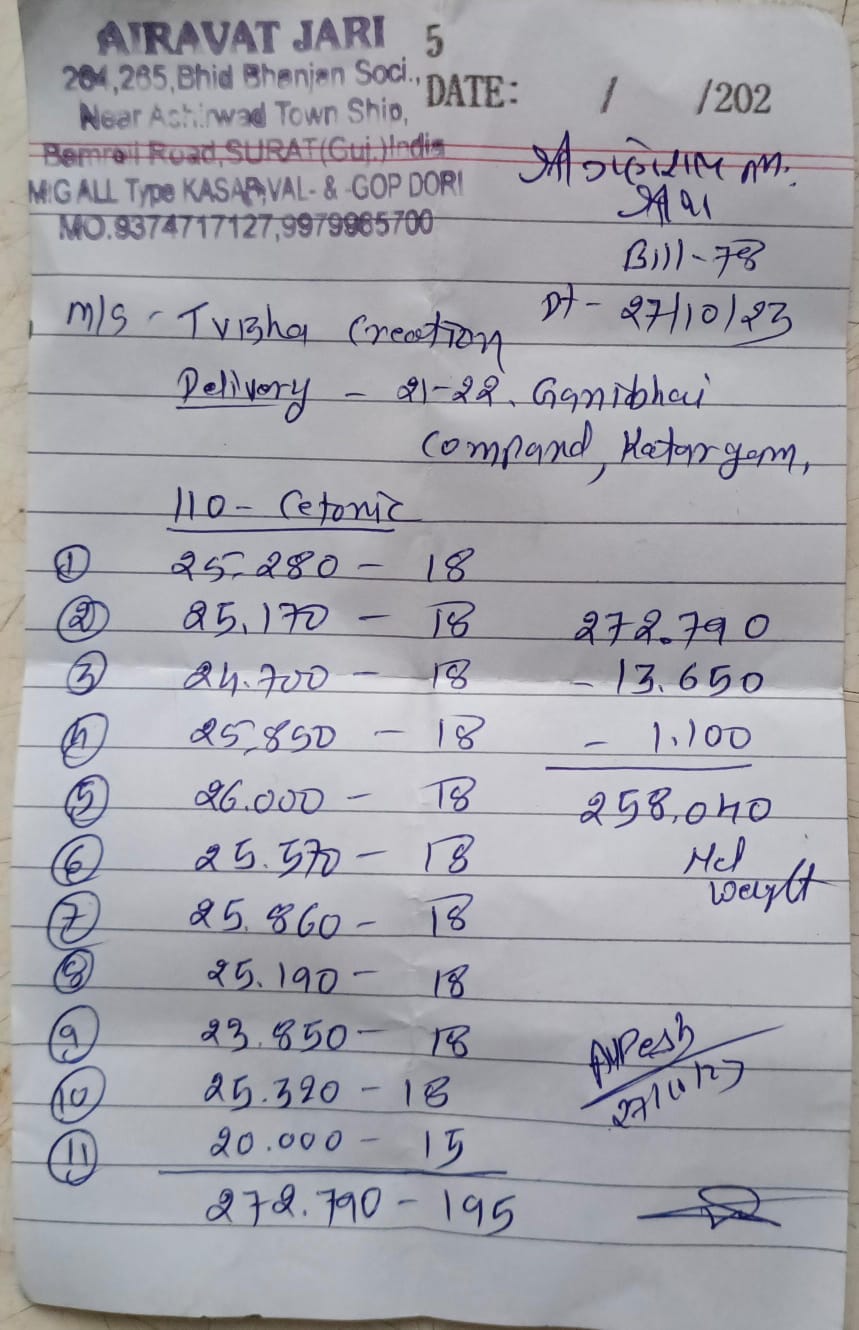 AIRAVAT JARI
264,265,Bhid Bhanjan Soci.,
Near Ashirwad Town Ship,
Bamroli Road,SURAT(Guj.)India
M:G ALL Type KASAB,VAL- & -GOP DORI
MO.9374717127,9979965700
5
DATE: / /202
Bill-78
Dt- 27/10/23
M/S - Tvisha Creation
Delivery - 21-22, Ganibhai
Compand, Katargam,
110 - Cetonic
① 25.280 - 18
② 25.170 - 18
③ 24.700 - 18
④ 25.850 - 18
⑤ 26.000 - 18
⑥ 25.570 - 18
⑦ 25.860 - 18
⑧ 25.190 - 18
⑨ 23.850 - 18
⑩ 25.320 - 18
⑪ 20.000 - 15
272.790 - 195
272.790
- 13.650
- 1.100
258.040
Net
weight